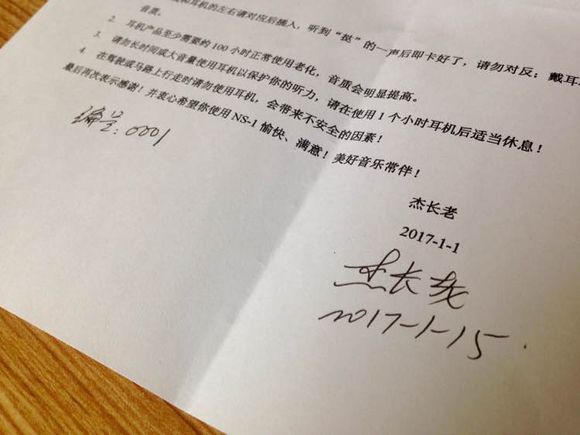 耳机的左右请对应后插入，听到“挞”的一声后即卡好了，请勿对反；戴耳
音质。
2. 耳机产品至少需要约 100 小时正常使用老化，音质会明显提高。
3. 请勿长时间或大音量使用耳机以保护你的听力，请在使用 1 个小时耳机后适当休息！
4 在驾驶或马路上行走时请勿使用耳机，会带来不安全的因素！
最后再次表示感谢！并衷心希望你使用 NS-1 愉快、满意！美好音乐常伴！
编号：0001
杰长老
2017-1-1
杰长老
2017-1-15